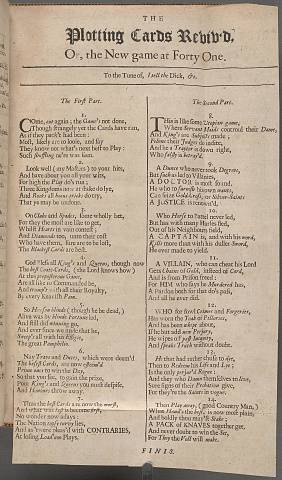 THE
Plotting Cards Reviv'd,
Or, the New game at Forty One.
To the Tune of, I tell the Dick, &c.
The First Part.
1.
COme, cut again; the Game's not done,
Though strangely yet the Cards have run,
As if they pack'd had been:
Most, likely are to look, and say
They knew not what's next best to Play:
Such shuffling ne're was seen.
2.
Look well (my Masters) to your hits,
And have about you all your wits,
For high the Play do's run;
Three Kingdoms now at stake do lye,
And Rooks all Tricks do try,
That ye may be undone.
3.
On Clubs and Spades, some wholly bet,
For they the most are like to get,
Whilst Hearts in vain contest;
And Diamonds too, turn their cost
Who have them, sure are to be lost,
The Blackest Cards are best.
4.
God bless all King's and Queens, though now
The best Court-Cards, (the Lord knows how)
At this preposterous Game,
Are all like to Commanded be,
And stript of all their Royalty,
By every Knavish Pam.
5.
So Herson blinds (though he be dead,)
Alive was by blinde Fortune led,
And still did winning go,
And ever since we make that he,
Sweep's all with his Effigie,
The great Pamphilio.
6.
Nay Trays and Duces, which were deem'd
The basest Cards, are now esteem'd
Prime ones to win the Day,
So that you see, to gain the prize,
Poor King's and Queens you must despise,
And Honours throw away.
7.
Thus the best Cards are now the worst,
And what was last is become first,
No wonder now adays:
The Nation topsie turvy lies,
And as 'twere pleas'd with CONTRARIES,
At losing Loadum Plays.
The Second Part.
8.
This is like some Utopian game,
Where Servant Maids controul their Dame,
And King's are Subjects made;
Felons their Judges do indite,
And he a Traytor is down right,
Who falsly is betray'd.
9.
A Dunce who never took Degrees,
But such as led to Villanies,
A DOCTOR is most sound.
He who to former blows wants,
Can seize Gold, Trash, or Silver-Saints
A JUSTICE is renown'd.
10.
Who Horse to Battel never led,
But has with many Harlots fled,
Out of his Neighbours field,
A CAPTAIN is, and with his word,
Kills more than with his duller Sword,
He ever made to yield.
11.
A VILLAIN, who can cheat his Lord
Gets Chains of Gold, instead of Cord,
And is from Prison freed:
For HIM who says he Murdered has,
A Pardon both for that do's pass,
And all he ever did.
12.
WHO for fowl Crimes and Forgeries,
Has worn the Tash of Pillories,
And has been whipt about,
If he but add new Perjury,
He wipes off past Iniquity,
And speaks Truth without doubt.
13.
He that had rather chuse to dye,
Then to Redeem his Life and Lye;
Is the only perjur'd Rogue:
And they who Damn themselves to save,
Sure signs of their Probation give,
For they're the Saints in vogue.
14.
Then Play away, (good Country Man,)
When Hand's the best, is now most plain:
And boldly thou may'st Stake;
A PACK of KNAVES together get,
And never doubt to win the Set,
For They the Vole will make.
FINIS.